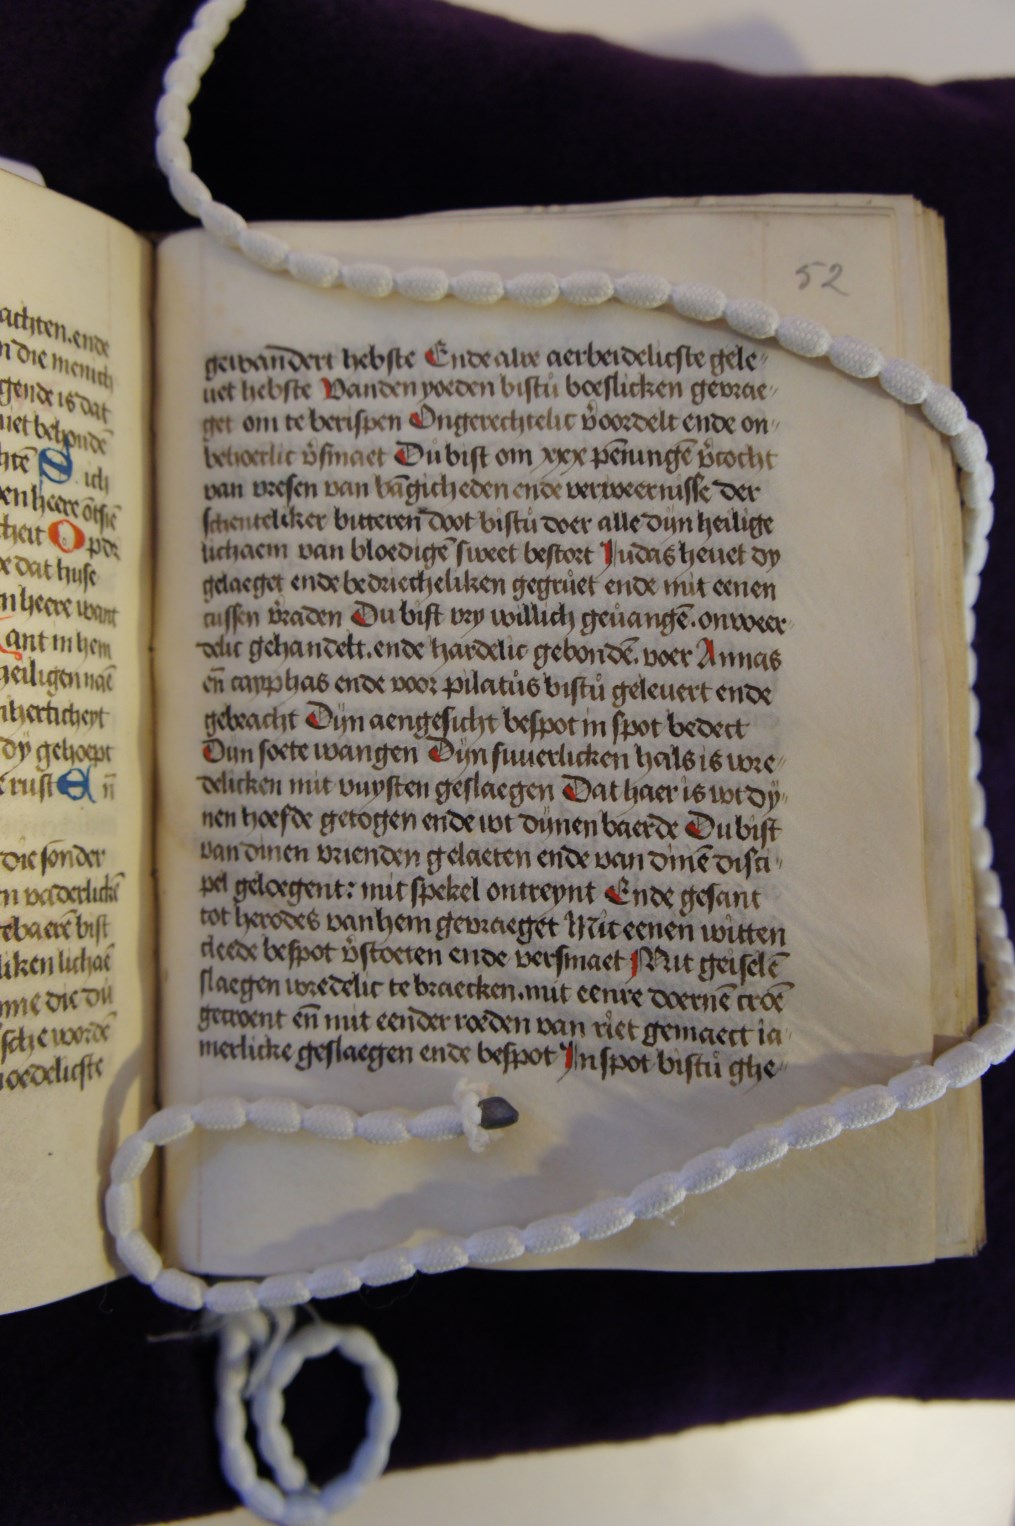 achten. ende
n die mensch
gende is dat
niet behondē
htē Sich
en heere ōtfiē
cheit Op dz
e dat huse
n heere want
ant in hem
heiligen naē
herlicheyt
dy gehoept
rust Eñ
die sonder
n vaderlickē
ebaerē bist
liken lichaē
me die du
sche wordē
oedelicste
52
gewandert hebste Ende alre aerbeidelicste gele-
uet hebste Vanden yoeden bistu boeslicken gevrae-
get om te berispen Ongerechtelic v̉oordelt ende on-
behoerlic v̉smaet Du bist om xxx penningē v̉cocht
van vresen van bāgicheden ende verweernisse der
schenteliker bitteren doot bistu doer alle dijn heilige
lichaem van bloedigē sweet bestort Iudas heuet dy
gelaeget ende bedriecheliken gegruet ende mit eenen
cussen v̉raden Du bist vry willich geuangē. onweer
delic gehandelt. ende hardelic gebondē. voer Annas
eñ cayphas ende voor pilatus bistu geleuert ende
gebracht Dijn aengesicht bespot in spot bedect
Dijn soete wangen Dijn suuerlicken hals is wre-
delicken mit vuysten geslaegen Dat haer is wt dy-
nen hoefde getogen ende wt dijnen baerde Du bist
van dinen vrienden gelaeten ende van dinē disci-
pel geloegent: mit spekel ontreynt Ende gesant
tot herodes van hem gevraeget Mit eenen witten
cleede bespot v̉stoeten ende versmaet Mit geiselē
slaegen wredelic te braecken. mit eenre doernē croē
gecroent eñ mit eender roeden van riet gemaect ia-
merlicke geslaegen ende bespot In spot bistu ghe-